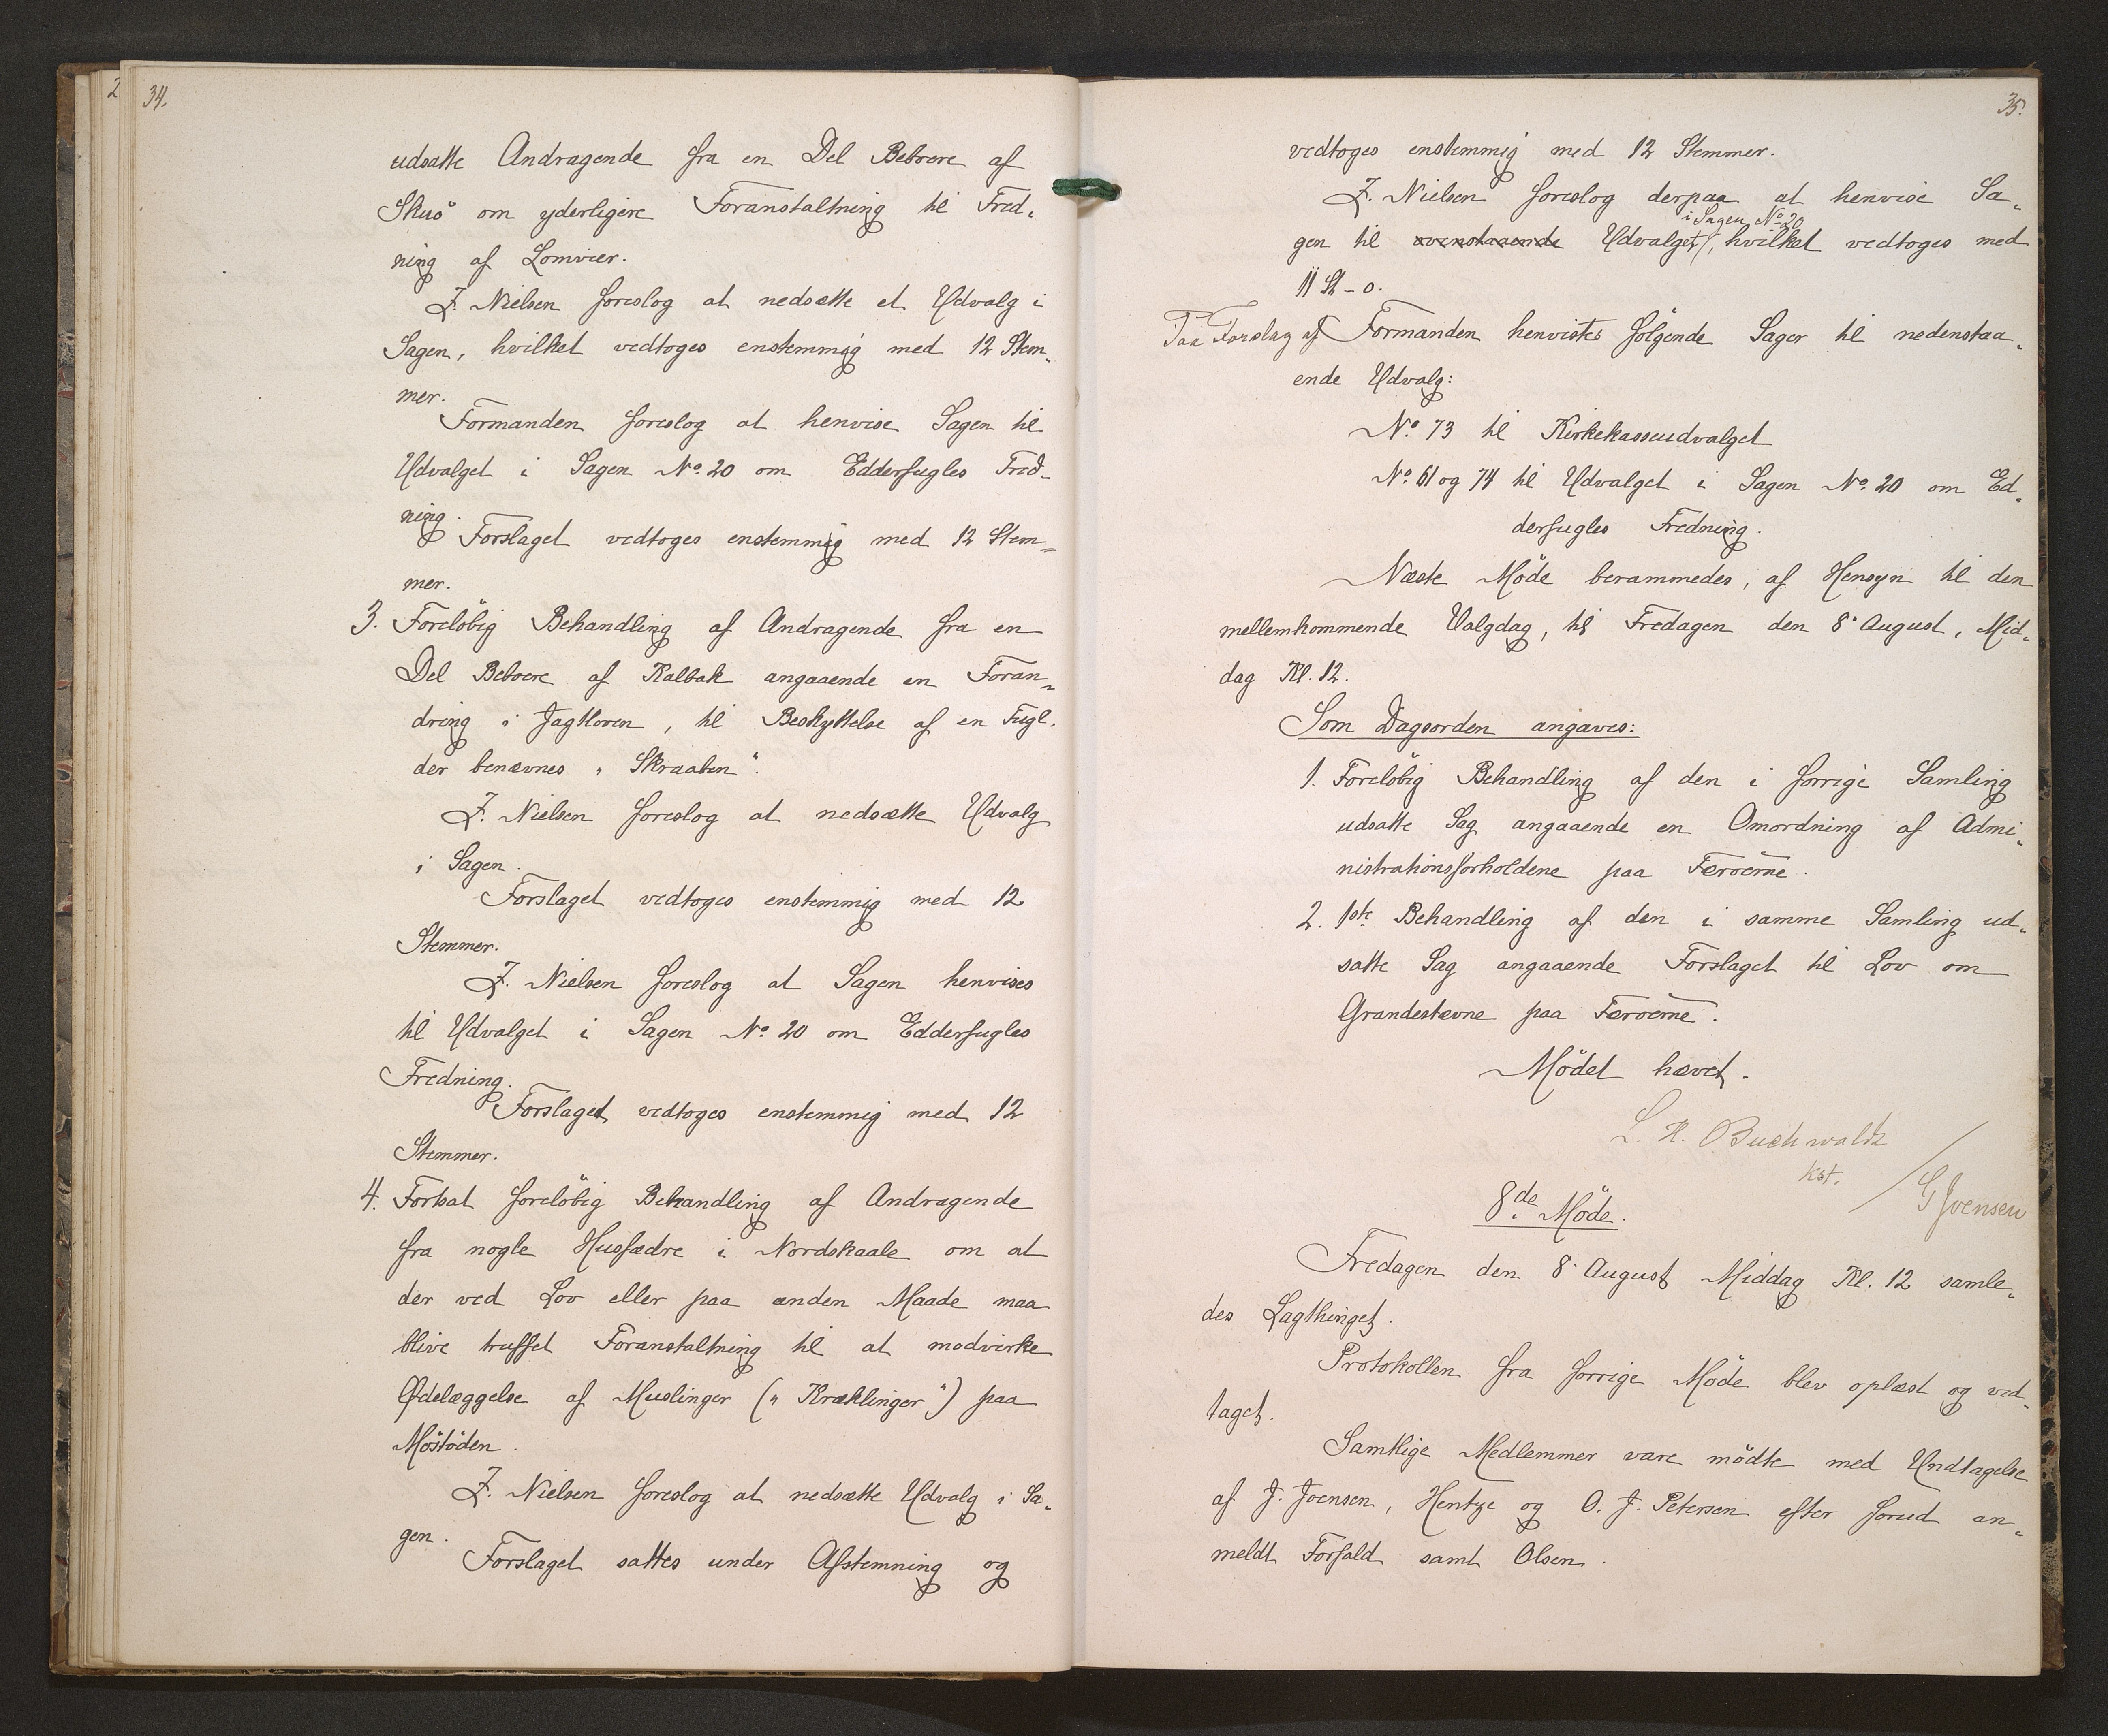 2
34.
udsatte Andragende fra en Del Beboere af
Skuö om yderligere Foranstaltning til Fred-
ning af Lomvier.
Z. Nielsen foreslog at nedsætte et Udvalg i
Sagen, hvilket vedtoges enstemmig med 12 Stem-
mer.
Formanden foreslog at henvise Sagen til
Udvalget i Sagen No. 20 om Edderfugles Fred-
ning.
Forslaget vedtoges enstemmig med 12 Stem-
mer.
3. Foreløbig Behandling af Andragende fra en
Del Beboere af Kalbak angaaende en Foran-
dring i Jagtloven, til Beskyttelse af en Fugl,
der benævnes „Skraaben“.
Z. Nielsen foreslog at nedsætte Udvalg
i Sagen.
Forslaget vedtoges enstemmig med 12
Stemmer.
Z. Nielsen foreslog at Sagen henvises
til Udvalget i Sagen No. 20 om Edderfugles
Fredning.
Forslaget vedtoges enstemmig med 12
Stemmer.
4. Fortsat foreløbig Behandling af Andragende
fra nogle Husfædre i Nordskaale om at
der ved Lov eller paa anden Maade maa
blive truffet Foranstaltning til at modvirke
Ødelæggelse af Muslinger („Kræklinger“) paa
Möstöden.
Z. Nielsen foreslog at nedsætte Udvalg i Sa-
gen.
Forslaget sattes under Afstemning og
35.
vedtoges enstemmig med 12 Stemmer.
Z. Nielsen foreslog derpaa at henvise Sa-
i Sagen No 20
gen til ovenstaaende Udvalget, hvilket vedtoges med
11 St - 0.
Paa Forslag af Formanden henvistes følgende Sager til nedenstaa-
ende Udvalg:
No. 73 til Kirkekasseudvalget
No. 61 og 74 til Udvalget i Sagen No. 20 om Ed-
derfugles Fredning.
Næste Möde berammedes, af Hensyn til den
mellemkommende Valgdag, til Fredagen den 8' August, Mid-
dag Kl. 12.
Som Dagsorden angaves:
1. Foreløbig Behandling af den i forrige Samling
udsatte Sag angaaende en Omordning af Admi-
nistrationsforholdene paa Færøerne.
2. 1ste Behandling af den i samme Samling ud-
satte Sag angaaende Forslaget til Lov om
Grandestevne paa Færøerne.
Mödet hævet.
L. H. Buchwaldt
kst.
/ G Joensen
8de Möde.
Fredagen den 8' August Middag Kl. 12 samle-
des Lagthinget.
Protokollen fra forrige Möde blev oplæst og ved-
taget.
Samtlige Medlemmer vare mödte med Undtagelse
af J. Joensen, Hentze og O. J. Petersen efter forud an-
meldt Forfald samt Olsen.